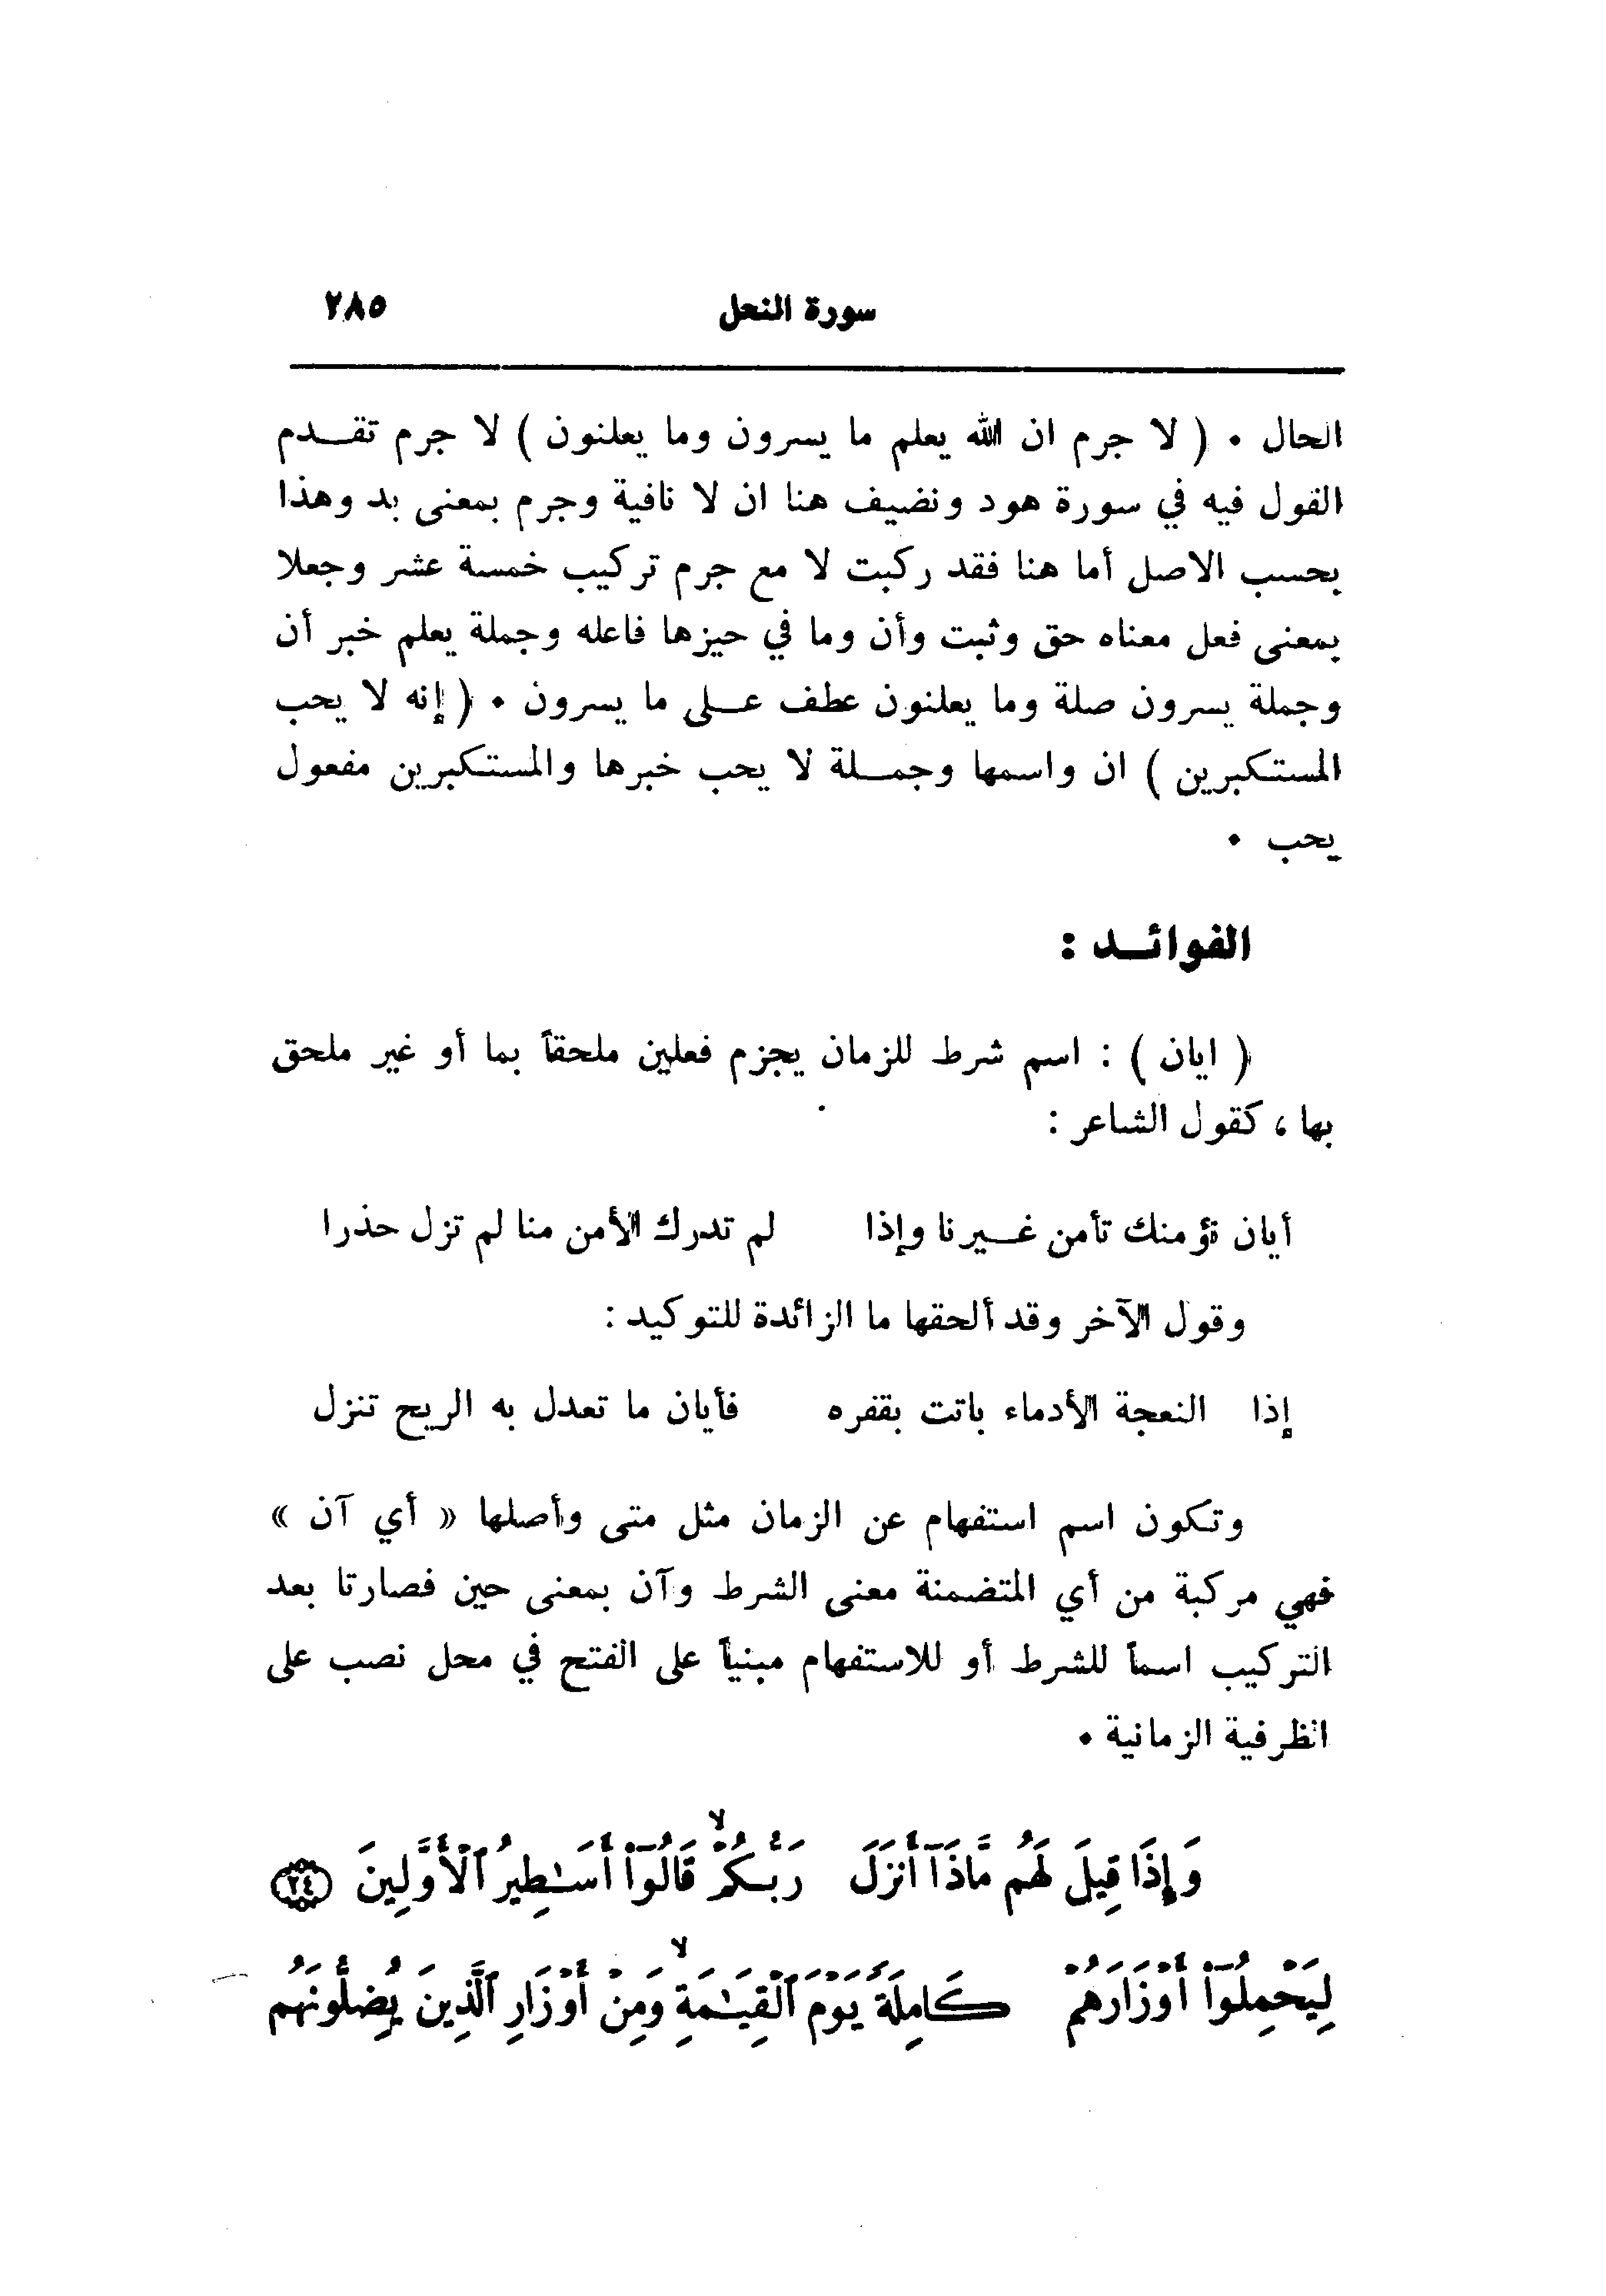 سورة النحل ٢٨٥
الحال ٠ ( لا جرم ان الله يعلم ما يسرون وما يعلنون ) لا جرم تقـــدم
القول فيه في سورة هود ونضيف هنا ان لا نافية وجرم بمعنى بد وهذا
بحسب الاصل أما هنا فقد ركبت لا مع جرم تركيب خمسة عشر وجعلا
بمعنى فعل معناه حق وثبت وأن وما في حيزها فاعله وجملة يعلم خبر أن
وجملة يسرون صلة وما يعلنون عطف عــلى ما يسرون ٠ ( إنه لا يحب
المستكبرين ) ان واسمها وجمـــلة لا يحب خبرها والمستكبرين مفعول
يحب ٠
الفوائــد :
( ايان ) : اسم شرط للزمان يجزم فعلين ملحقاً بما أو غير ملحق
بها ، كقول الشاعر :
أيان نؤمنك تأمن غــيرنا وإذا لم تدرك الأمن منا لم تزل حذرا
وقول الآخر وقد ألحقها ما الزائدة للتوكيد :
إذا النعجة الأدماء باتت بقفره فأيان ما تعدل به الريح تنزل
وتكون اسم استفهام عن الزمان مثل متى وأصلها « أي آن »
فهي مركبة من أي المتضمنة معنى الشرط وآن بمعنى حين فصارتا بعد
التركيب اسماً للشرط أو للاستفهام مبنياً على الفتح في محل نصب على
الظرفية الزمانية ٠
وَإِذَا قِيلَ لَهُم مَّاذَآ أَنزَلَ رَبُّكُمْ ۙ قَالُوٓا۟ أَسَـٰطِيرُ ٱلْأَوَّلِينَ ٢٤
لِيَحْمِلُوٓا۟ أَوْزَارَهُمْ كَامِلَةً يَوْمَ ٱلْقِيَـٰمَةِ ۙ وَمِنْ أَوْزَارِ ٱلَّذِينَ يُضِلُّونَهُم